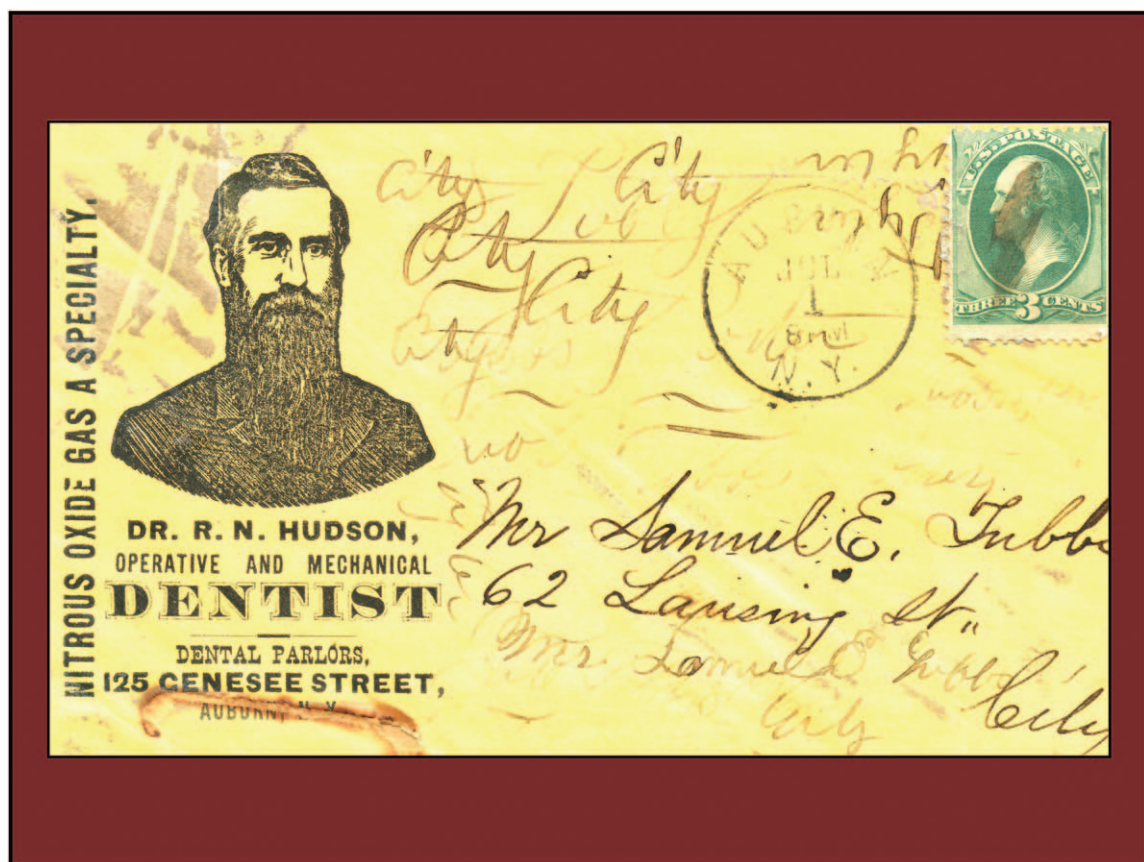 NITROUS OXIDE GAS A SPECIALTY.
DR. R. N. HUDSON,
OPERATIVE AND MECHANICAL
DENTIST
DENTAL PARLORS,
125 GENESEE STREET,
AUBURN, N.Y.
City City
City
City
City
AUBURN
JUL
1
8 AM
N.Y.
U.S. POSTAGE
THREE 3 CENTS
Mr Samuel E. Tubbs
62 Lansing St.,
City
Mr Samuel Tubbs
City